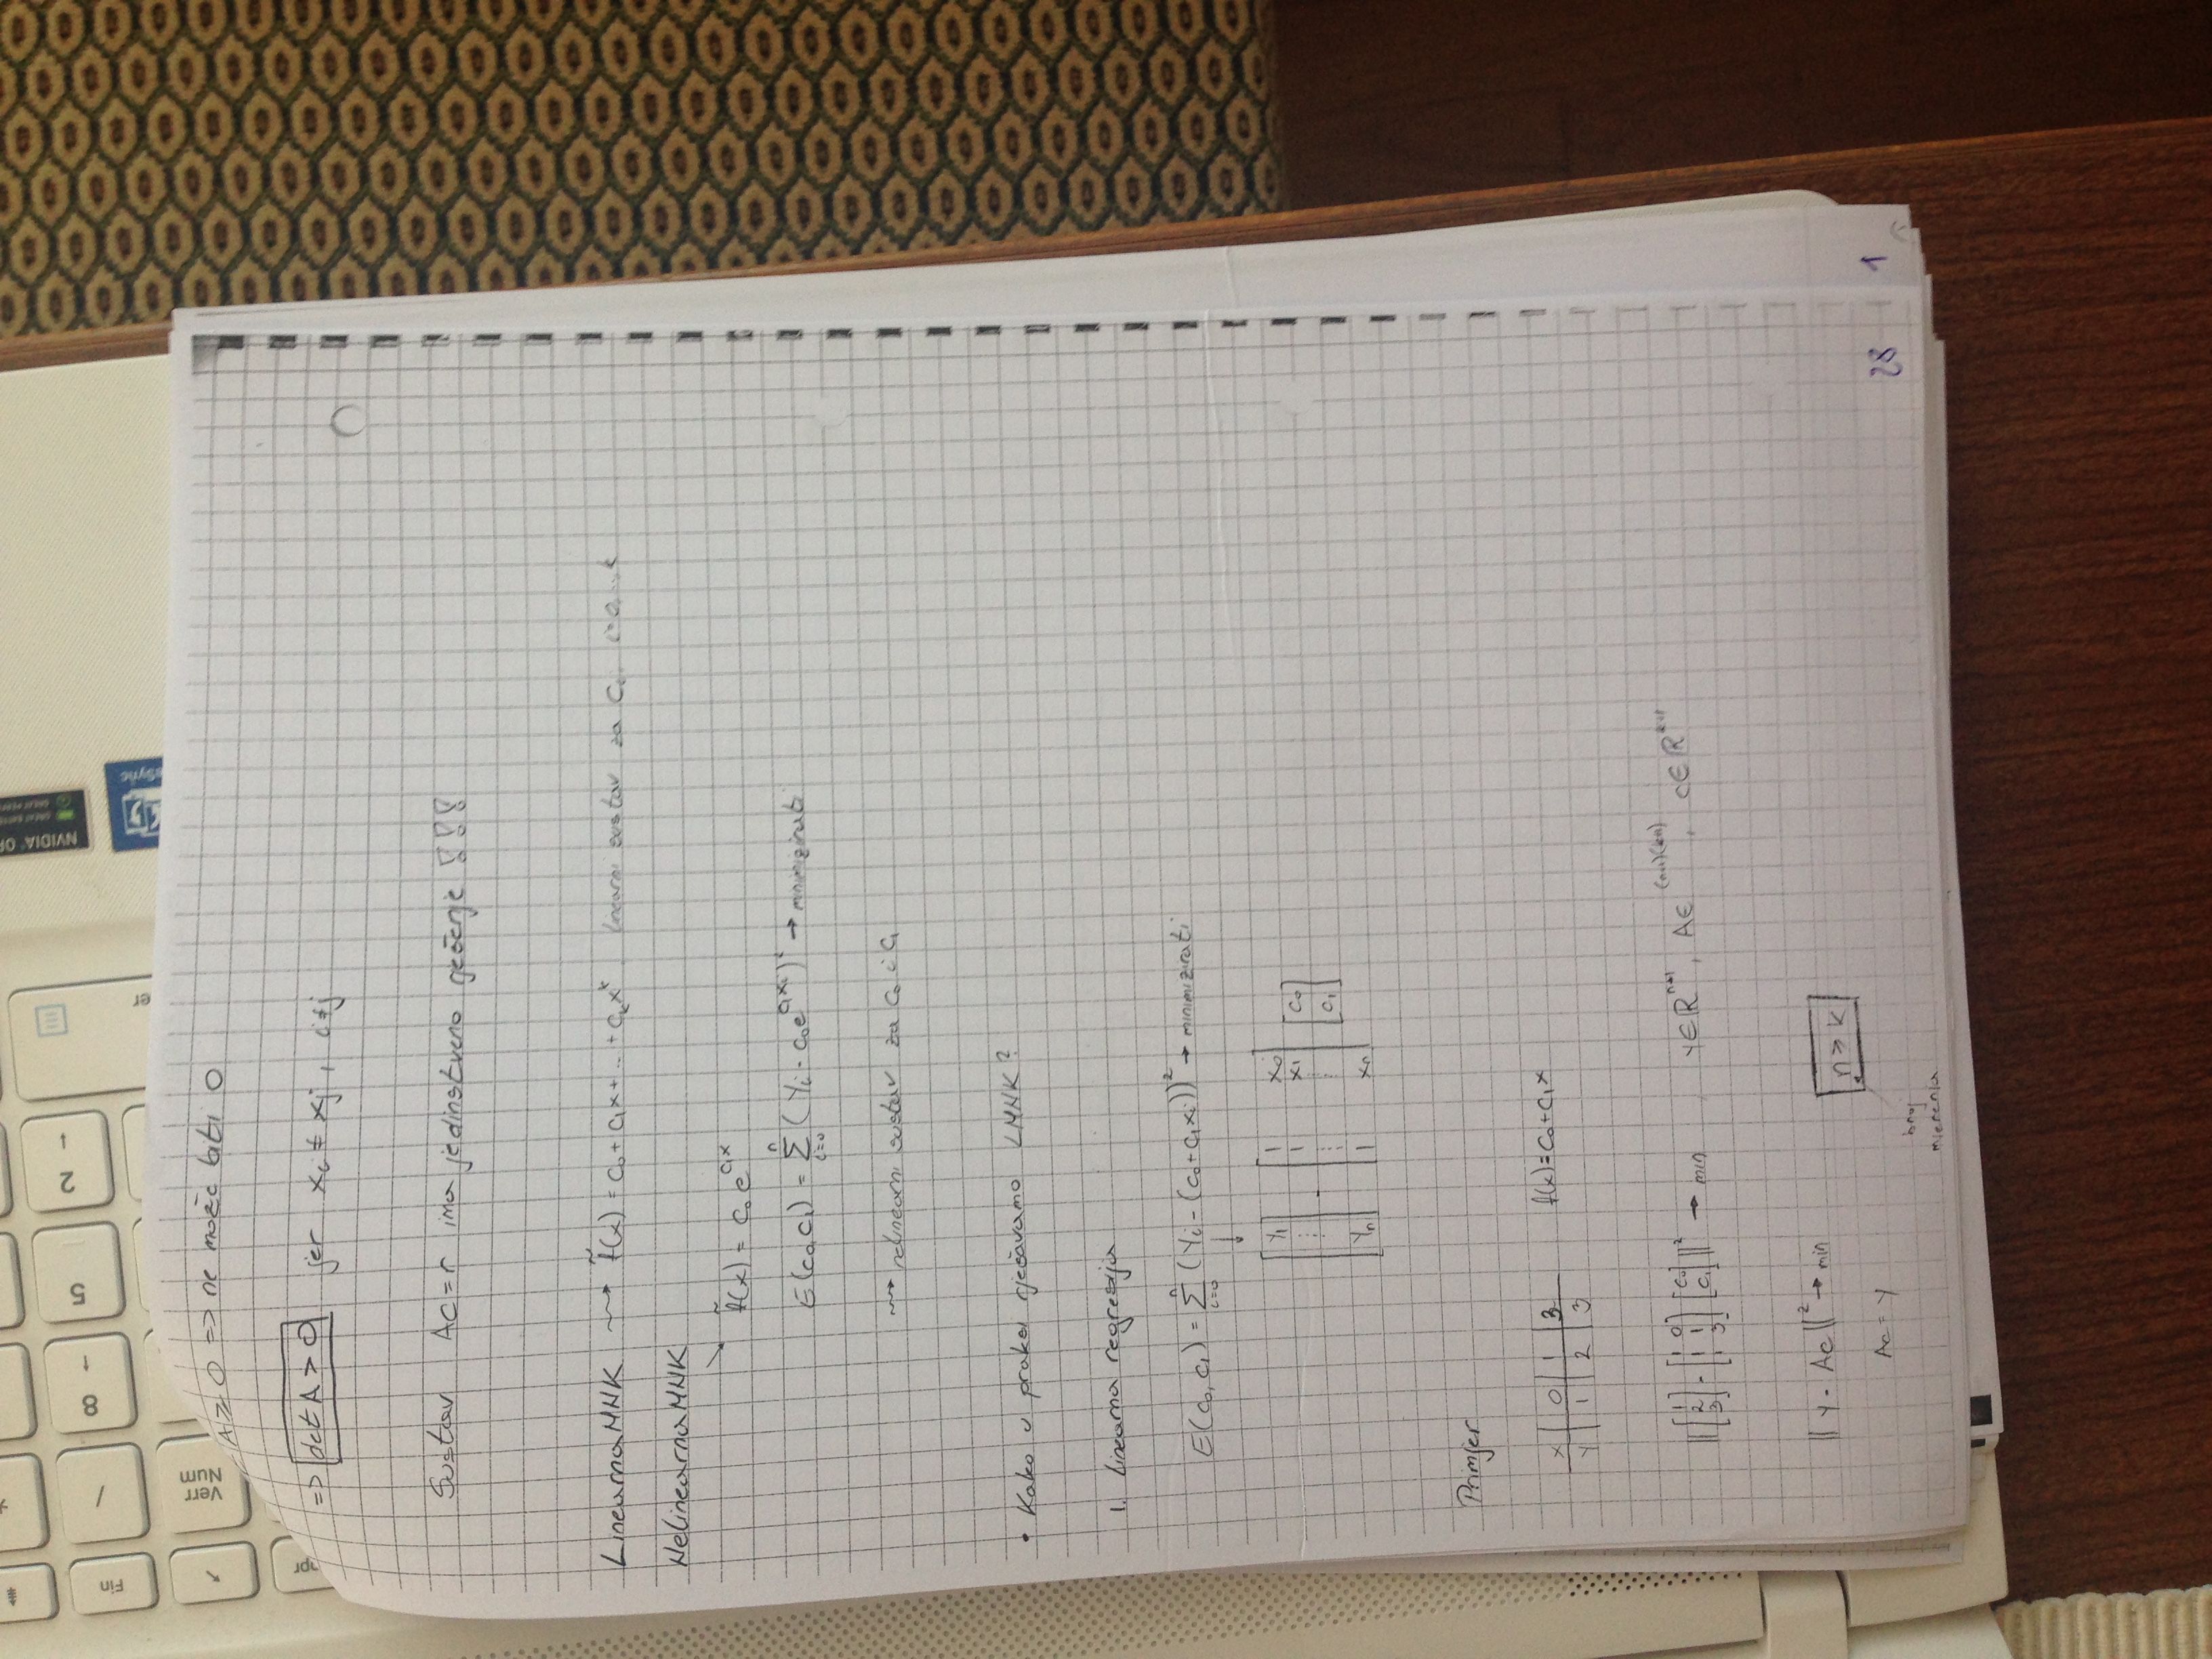 Fin
/
8
5
2
Verr
Num
er
NVIDIA
A ≥ 0 => ne može biti 0
=> det A > 0 jer xi ≠ xj, i≠j
Sustav Ac = r ima jedinstveno rješenje !!!
Linearna MNK ⇝ f̃(x) = c₀ + c₁x + ... + cₖxᵏ linearni sustav za
Nelinearna MNK
f̃(x) = c₀e^(c₁x)
E(c₀,c₁) = Σ_(i=0)^n (yi - c₀e^(c₁xi))² → minimizirati
⇝ nelinearni sustav za c₀ i c₁
• Kako u praksi rješavamo LMNK?
1. Linearna regresija
E(c₀,c₁) = Σ_(i=0)^n (yi - (c₀+c₁xi))² → minimizirati
↓
[y₁ ... yn] - [1 x₀ 1 x₁ ... 1 xn] [c₀ c₁]
Primjer
x | 0 | 1 | 3 f(x) = c₀+c₁x
y | 1 | 2 | 3
||[1 2 3] - [1 0 1 1 1 3] [c₀ c₁]||² → min, y∈R^(n+1), A∈^((n+1)(k+1)), c∈R^(k+1)
||y - Ac||² → min
n > k
Ac = y
broj
mjerenja
28
1